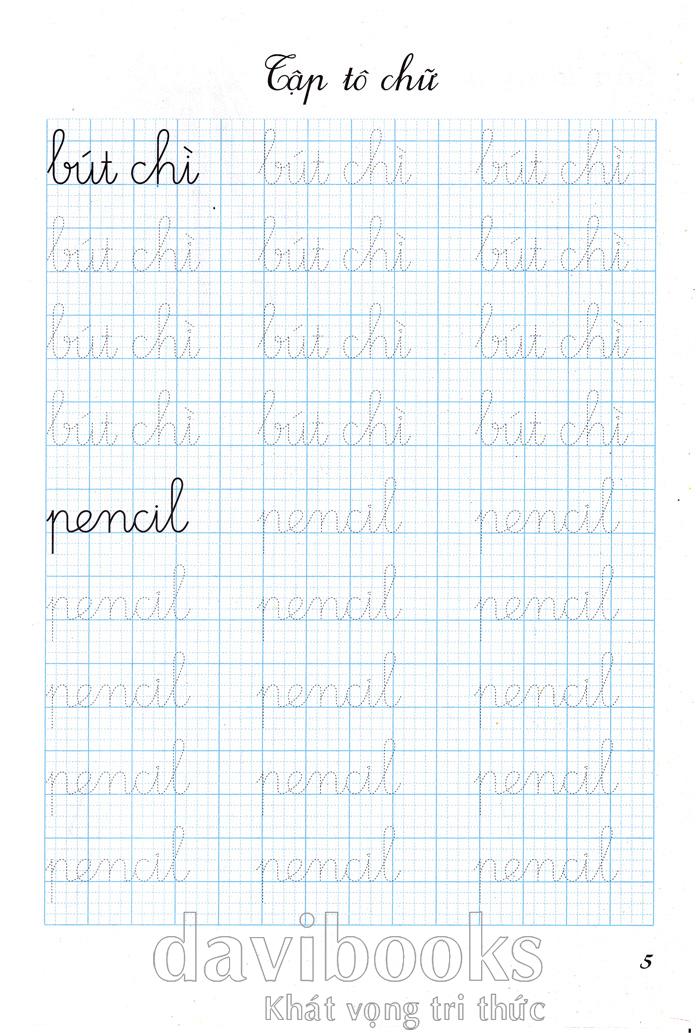 Tập tô chữ
bút chì bút chì bút chì
bút chì bút chì bút chì
bút chì bút chì bút chì
bút chì bút chì bút chì
pencil pencil pencil
pencil pencil pencil
pencil pencil pencil
pencil pencil pencil
pencil pencil pencil
davibooks
5
Khát vọng tri thức